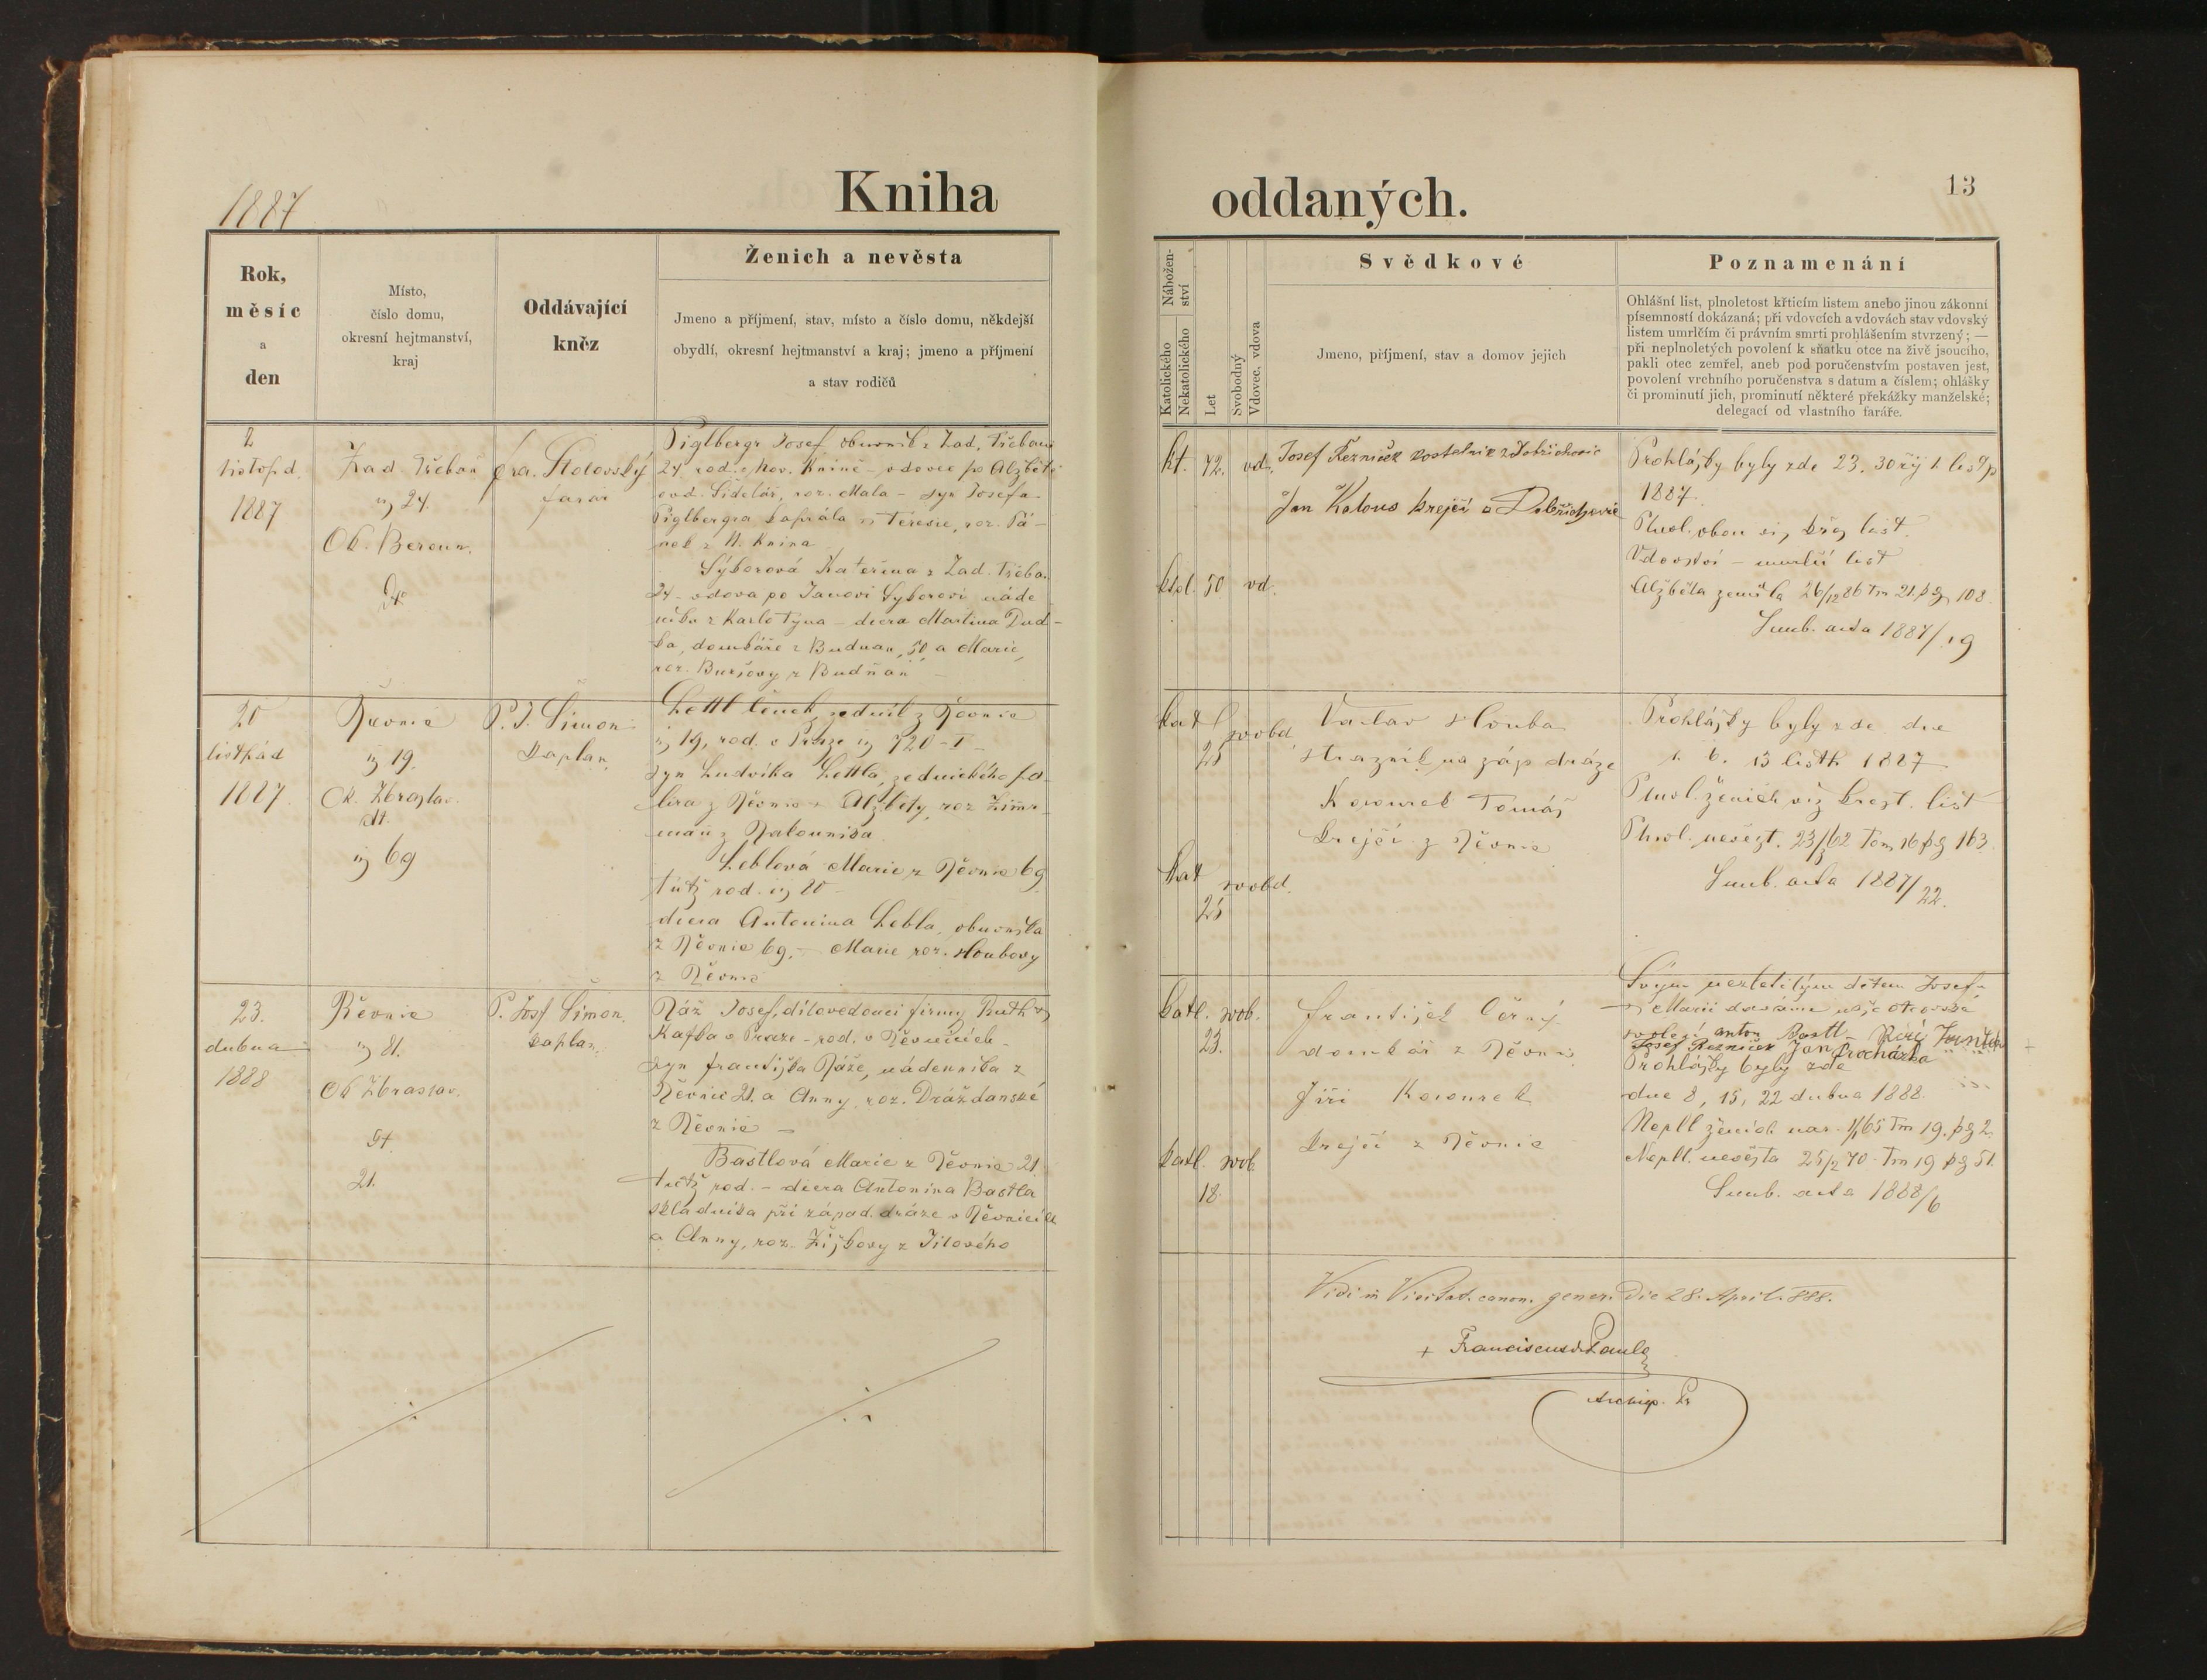 1887
Kniha
oddaných.
13
Rok,
měsíc
a
den
Místo,
číslo domu,
okresní hejtmanství,
kraj
Oddávající
kněz
Ženich a nevěsta
Jmeno a příjmení, stav, místo a číslo domu, někdejší
obydlí, okresní hejtmanství a kraj; jmeno a příjmení
a stav rodičů
Nábožen-
ství
Katolického
Nekatolického
Let
Svobodný
Vdovec, vdova
Svědkové
Jmeno, příjmení, stav a domov jejich
Poznamenání
Ohlášní list, plnoletost křticím listem anebo jinou zákonní
písemností dokázaná; při vdovcích a vdovách stav vdovský
listem umrlčím či právním smrti prohlášením stvrzený; —
při neplnoletých povolení k sňatku otce na živě jsoucího,
pakli otec zemřel, aneb pod poručenstvím postaven jest,
povolení vrchního poručenstva s datum a číslem; ohlášky
či prominutí jich, prominutí některé překážky manželské;
delegací od vlastního faráře.
2
listop. d.
1887
Zad Třebaň
24.
Ok. Beroun.
farář
Piglbergr Josef, obuvník z Zad. Třebaně
24 rod. v Nov. Kníně - vdovec po Alžbětě
ovd. Šidelář, roz. Mala - syn Josefa
Piglbergra kaprála Teresie, roz. Pá-
nek z N. Knína
Sýkorová Kateřina z Zad. Třeban
24 - vdova po Janovi Sykorovi náde
níku z Karlotýna - dcera Martina Dud-
ka, domkáře z Budnan, 50 a Marie,
roz. Buršovy z Budňan
kt. 72. vd.
ktol. 50 vd.
Josef Rezniček kostelnik z Dobřichovic
Jan Kalous krejčí z Dobřichovic
Prohlášky byly zde 23. 30 říj 1 listp
1887.
Plnol. obou list.
Vdovství - umrlčí list
Alžběta zemřela 26/12 86 Tm 21. pg 108
Snub. acta 1887/19
20
listpad
1887.
Řevnice
19.
Ok. Zbraslav.
69
P. J. Šimon
kaplan
Lettl zedník z Řevnic
19, rod. v Praze 720-I
syn Ludvíka Lettla, zednického po-
líra z Řevnic Alžběty, roz Zimr-
man z Rakovníka
Leblová Marie z Řevnic 69
tutž rod. 80 -
dcera Antonína Lebla, obuvníka
z Řevnic 69. - Marie roz. Houbovy
z Řevnic
kat svobd.
25
kat svobd.
25
Vaclav Houba
strazník na záp dráze
Kocourek Tomáš
krejčí z Řevnic
Prohlášky byly zde dne
1. 6. 13 listp 1887
Plnol. ženich viz krest. list
Plnol. nevěst. 23/3 62 Tom 16 pg 163.
Snub. acta 1887/22.
23.
dubna
1888
Řevnice
81.
Ok Zbraslav.
21.
P. Josf Šimon.
kaplan.
Ráž Josef, dílovedoucí firmy
Kafka v Praze - rod. v Řevnicích -
syn Františka Ráže, nádenníka z
Řevnic 21. a Anny, roz. Drážďanské
z Řevnic -
Bastlová Marie z Řevnic 21
tutž rod. - dcera Antonína Bastla
skladníka při západ. dráze v Řevnicích
a Anny, roz. Žižkovy z Jilového
katl. svob.
23.
katl. svob
18.
František Černý
domkář z Řevnic
Jiří Kocourek
krejčí z Řevnic
Svým nezletilým dětem Josefu
Marii dáváme naše otcovské
svolení anton Bastl
Josef Rezniček Jan Procházka
Prohlášky byly zde
dne 8, 15, 22 dubna 1888.
Nepll ženich nar. 1/1 65 Tm 19. pg 2.
Nepll. nevěsta 25/2 70 Tm 19 pg 51.
Snub. acta 1888/6
Vidi in Visitat. canon. gener. die 28. April. 888.
+ Franciscus de Paula
Archiep.